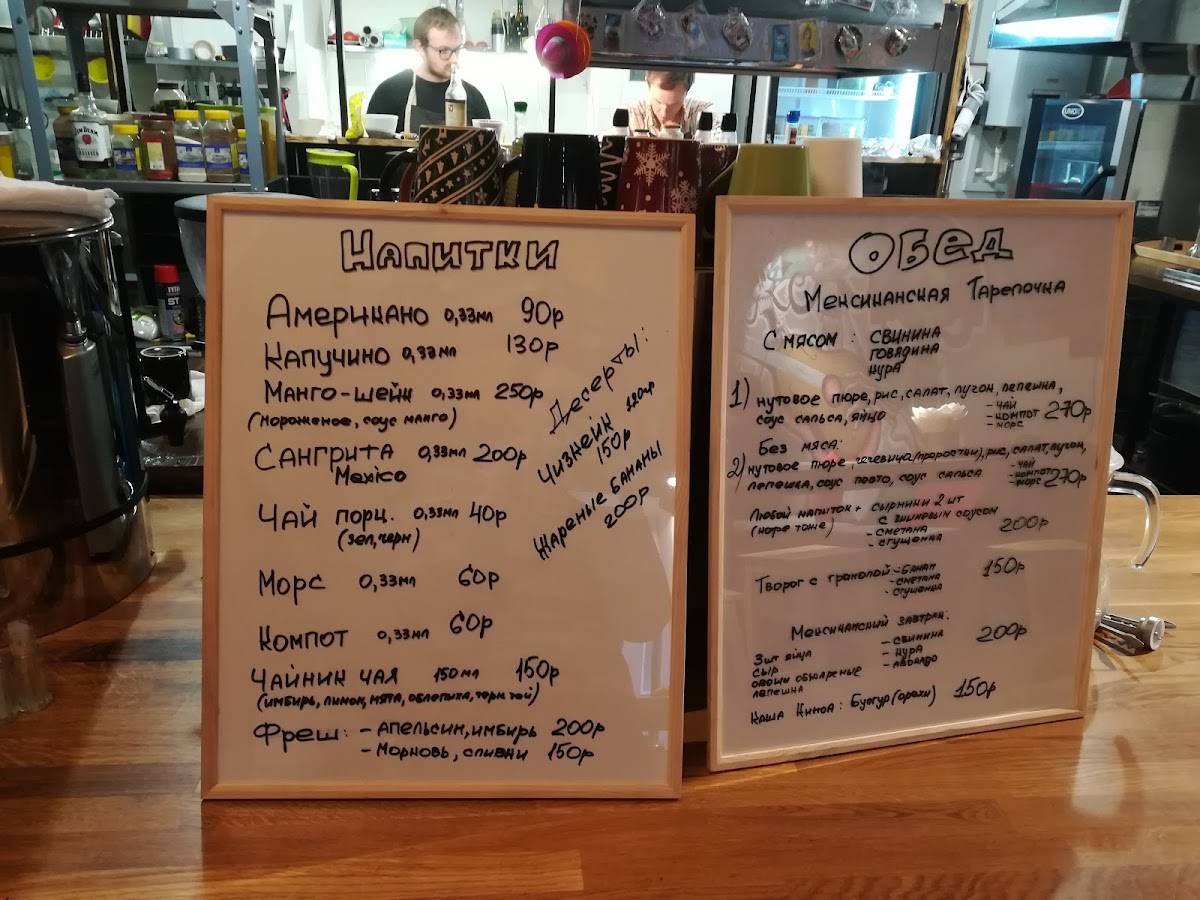 Напитки
Американо 0,33мл 90р
Капучино 0,33мл 130р
Манго-шейк 0,33мл 250р
(мороженое, соус манго)
Сангрита 0,33мл 200р
Mexico
Чай порц. 0,33мл 40р
(зел, черн)
Морс 0,33мл 60р
Компот 0,33мл 60р
Чайник чая 150мл 150р
(имбирь, лимон, мята, облепиха, черн чай)
Фреш: - Апельсин, имбирь 200р
- Морковь, сливки 150р
Десерты:
Чизкейк
150р
Жареные бананы
200р
Обед
Мексиканская Тарелочка
С мясом: свинина
говядина
кура
1) нутовое пюре, рис, салат, лучок, лепешка,
соус сальса, яйцо
- чай
- компот 270р
- морс
Без мяса:
2) нутовое пюре, чечевица (проростки), рис, салат, лучок,
лепешка, соус песто, соус сальса
- чай
- компот 270р
- морс
Любой напиток + сырники 2 шт
(кофе тоже) с вишневым соусом
- сметана 200р
- сгущенка
Творог с гранолой - банан 150р
- сметана
- сгущенка
Мексиканский завтрак:
3шт яйца - свинина 200р
сыр - кура
овощи обжареные - авокадо
лепешка
Каша Киноа: Булгур (орехи) 150р
JIM BEAM
UNOX